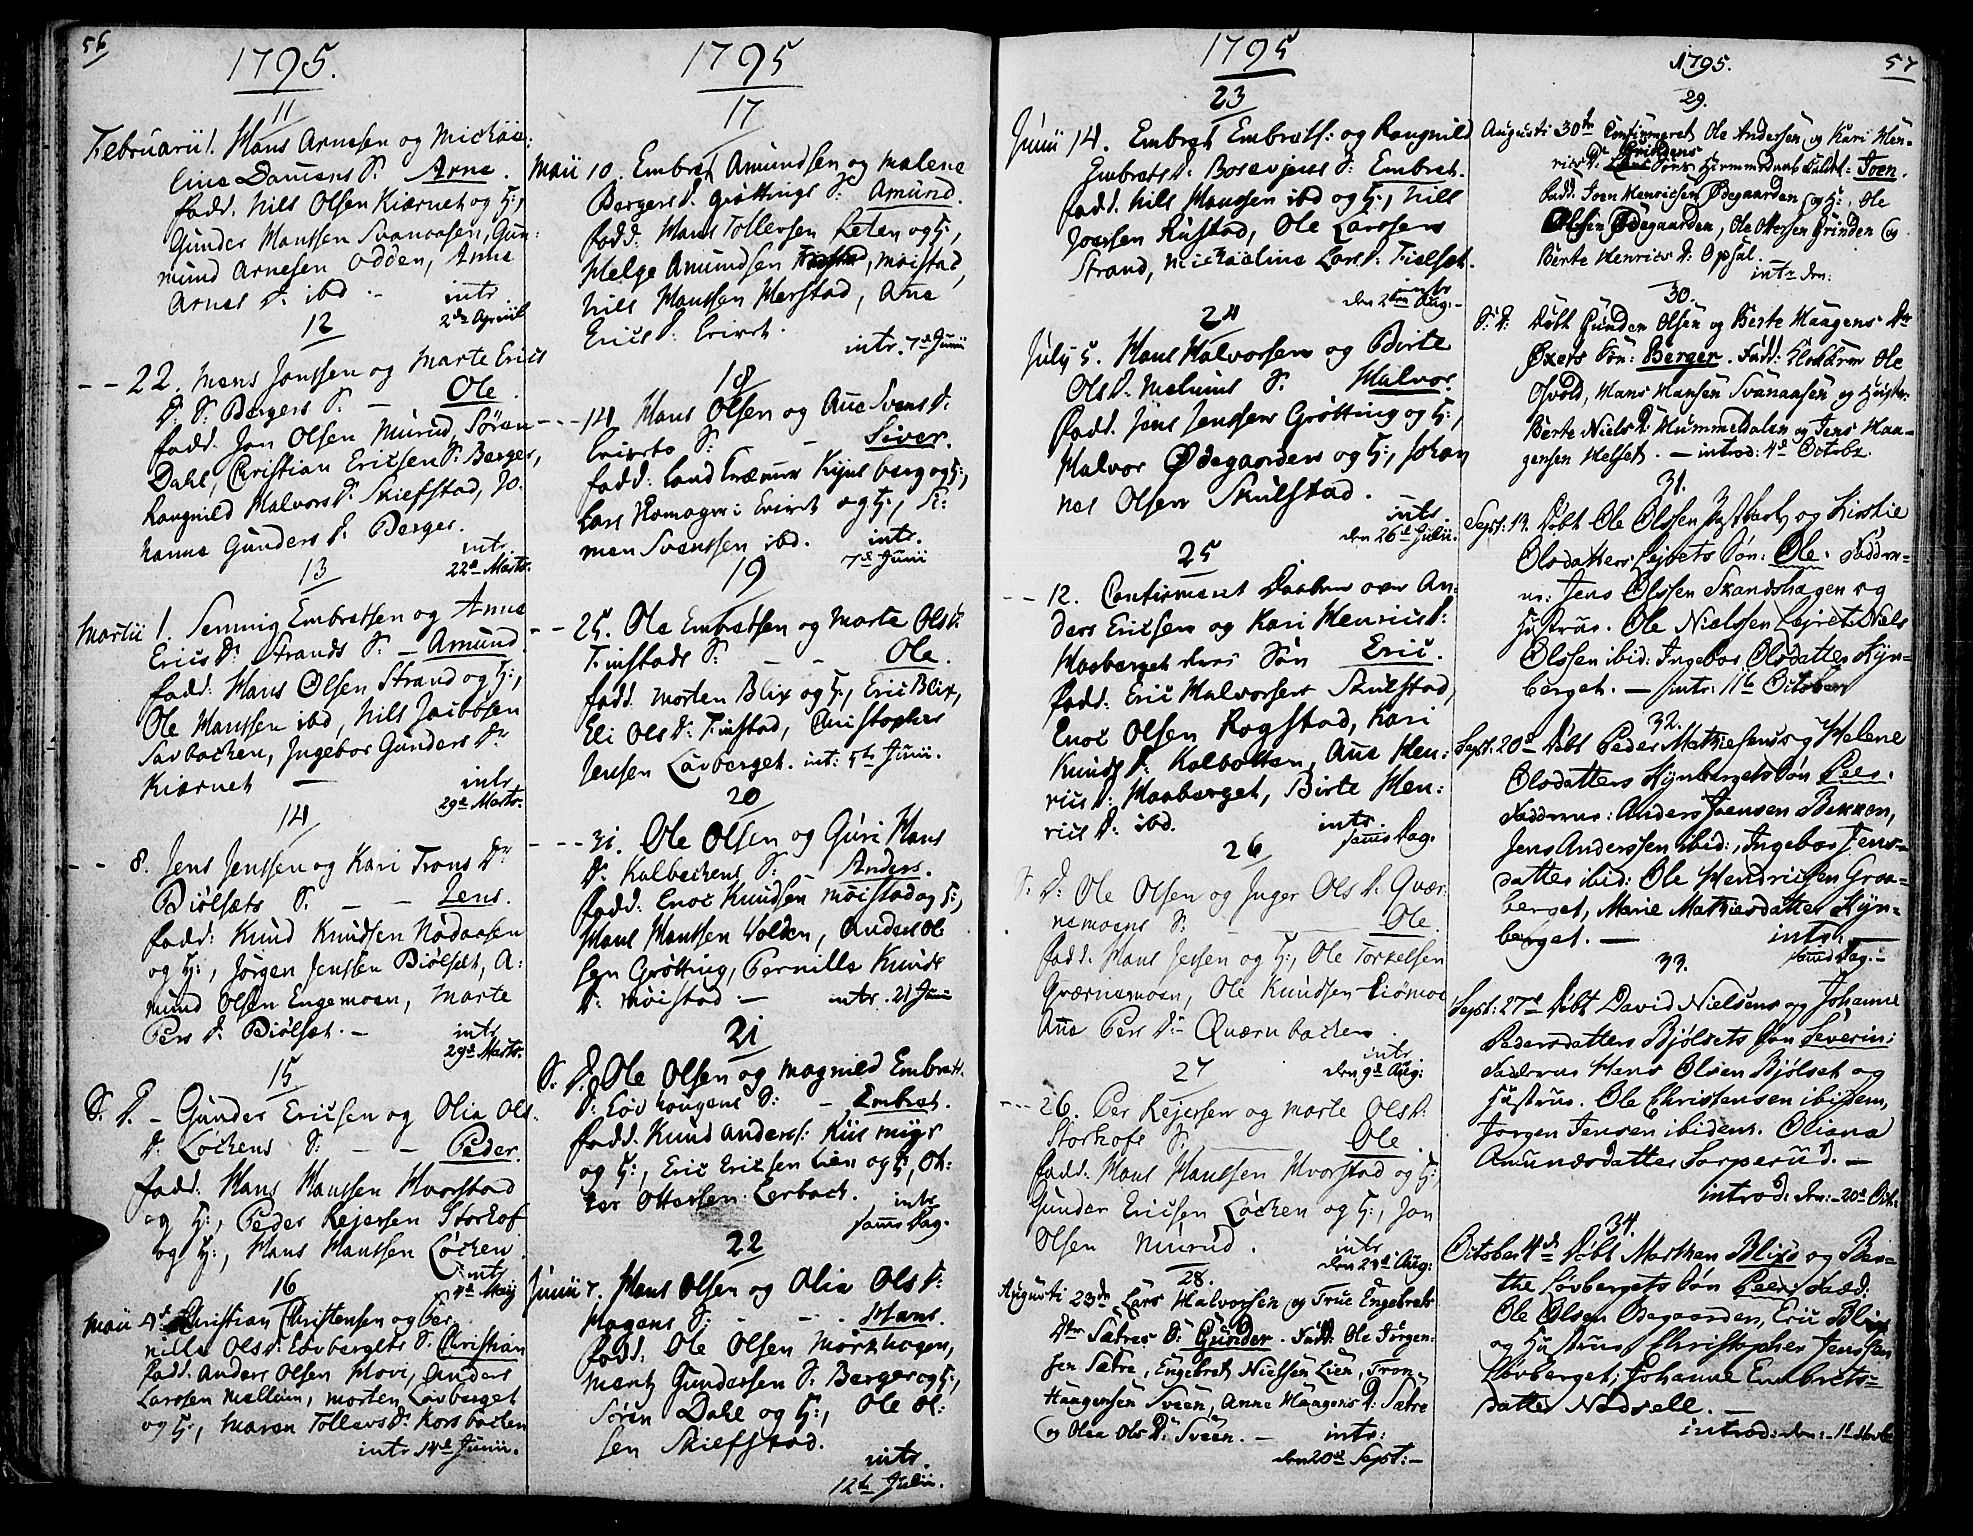 56
1795.
11
Februarii 1. Hans Arnesen og Michae:
lina Damens S. Arne.
fadd. Nils Olsen Kiærnet og H:,
Gunder Hanssen Svenaasen, Gun:
mund Arnesen Odden, Anne
Arnes D. ibd. - intr.
2de April
12
- - 22. Mons Jonssen og Marte Erics
D. S. Bergers S. - Ole.
fadd. Jon Olsen Murud, Søren
Dahl, Christian Ericsen S. Berger,
Rangnild Halvors D. Skiefstad, Jo-
hanna Gunders D. Berger.
intr.
22de Marts.
13
Martii 1. Semmig Embretsen og Anne
Erics Dr. Strands S. - Amund.
fadd: Hans Olsen Strand og H:,
Ole Hanssen ibd, Nils Jacobsen
Savbachen, Ingebor Gunders Dr
Kiærnet - intr.
29de Marts.
14
- - 8. Jens Jenssen og Kari Trons Dr
Biölsets S. - - Jens.
fadd: Knud Knudsen Nodaasen
og H:, Jørgen Jenssen Biölset, A:
mund Olsen Engemoen, Marte
Pers D. Biölset. - intr.
29de Marts.
15
S. D. - Gunder Ericsen og Olia Ols
D. Lochens S. - - Peder.
fadd. Hans Hanssen Hvorstad
og H:, Peder Rejersen Storhof
og H:, Hans Hanssen Løchen.
intr.
4de Maij
16
Maii 4de Christian Christensen og Per
nille Ols D. Lövbergets S. Christian
fadd. Anders Olsen Hovi, Anders
Larssen Mellum, Morten Lövberget
og H:, Maren Tollevs D. Korsbachen
intr. 14de Junii.
1795
17
Maii 10. Embret Amundsen og Malene
Bergers D. Gröttings S. Amund.
fadd. Hans Tollersen Leten og H:,
Helge Amundsen Moistad,
Nils Hanssen Herstad, Ane
Erics D. Evivet.
intr. 7de Junii
18
- - 14. Hans Olsen og Ane Svens D.
Evirets S. - - Siver.
fadd: Land Kræmer Kynsberg og H:,
Lars Homager i Eviret og H:, Si:
men Svenssen ibd. intr.
7de Junii
19
- - 25. Ole Embretsen og Marte Ols D.
Finstads S. - - Ole.
fadd. Morten Blix og H:, Eric Blix,
Eli Ols D. Finstad, Christopher
Jensen Lövberget. int: 5te Junii.
20
- - 31. Ole Olsen og Guri Hans
D. Kalbachens S. Anders.
fadd: Enoc Knudsen Moistad og H:,
Hans Hanssen Volden, Anders Ol
sen Grötting, Pernille Knuds
D. Moistad - intr. 21 Junii
21
S. D. Ole Olsen og Magnild Embrets
D: Lövhougens S: - Embret.
fadd. Knud Anders: Kiismyr
og H:, Eric Ericsen Lien og H:, Ot:
ter Ottersen Lerbach. intr.
samme Dag.
22
Junii 7. Hans Olsen og Olia Ols D.
Hagens S: - - - Hans.
fadd: Ole Olsen Mörkhagen,
Mentz Gundersen S. Berger og H:,
Sören Dahl og H:, Ole Ol:
sen Skiefstad.
intr.
12te Julii.
1795
23
Junii 14. Embret Embrets: og Rangnild
Embrets D. Borevjens S: Embret.
fadd. Nils Hanssen ibd og H:, Nils
Joerssen Rustad, Ole Larssen
Strand, Michaeline Lars D. Fielset.
intr.
den 2den Aug: -
24
Julij 5. Hans Halvorsen og Birte
Ols D. Melums S. Halvor.
fadd. Jens Jenssen Grötting og H:,
Halvor Ødegaarden og H:, Johan
nes Olsen Skulstad.
intr.
den 26de Julii.
25
- - 12. Confirmeret Daaben over An:
ders Ericsen og Kari Henrics D:
Haaberget deres Søn Eric.
fadd: Eric Halvorsen Skulstad,
Enoc Olsen Rogstad, Kari
Knuds D. Kalbotten, Ane Hen:
rics D: Haaberget, Birte Hen:
rics D: ibd. intr.
samme Dag.
26
S. D: Ole Olsen og Inger Ols D. Qvær
nemoens S: - Ole.
fadd. Hans Jensen og H:, Ole Torkelsen
Qværnemoen, Ole Knudsen Liömoe
Ane Pers D: Qværnbachen.
intr.
den 9de Aug:
27
- - - 26. Per Rejersen og Marte Ols D:
Storhofs S. - Ole.
fadd. Hans Hanssen Hvorstad og H:
Gunder Ericsen Löchen og H:, Jon
Olsen Murud. intr.
den 23de Aug:
28.
Augusti 23de Lars Halvorsen og True Engebrets
Dtr Sætres S: Gunder. Fadd: Ole Jörgen-
sen Sætre, Engebret Nielsen Lien, Tron
Haagensen Sveen, Anne Haagens D: Sætre
og Olea Ols D: Sveen. - intr:
den 20de Sept: -
1795. 57
29.
Augusti 30te Confirmeret Ole Andersen og Kari Hen-
rics D. Grindens Søns Hjemmedaab kaldt: Joen.
Fadd. Joen Henricsen Ødegaarden og H:, Ole
Olsen Ødegaarden, Ole Ottersen Grinden og
Berte Henrics D: Opsal.
intr. den:
30.
S: D: Døbt Gunder Olsen og Berte Haagens Dtr
Øxets Søn: Berger. Fadd: Klokkeren Ole
Osvold, Hans Hansen Svenaasen og Hustru
Berte Niels D: Hummeldalen og Jens Haa-
gensen Helset. - introd: 4de Octobr.
31.
Sept: 13. Døbt Ole Olssen og Kirstie
Olsdatters Lejrets Søn: Ole. Faddere-
ne: Jens Olssen Skandshagen og
Hustrue. Ole Nielssen Lejret. Niels
Olssen ibid: Ingebor Olsdatter Kyn-
berget. - intr: 11te October
32.
Sept: 20de Døbt Peder Mathiesens og Helene
Olsdatters Kynbergets Søn Peer.
Fadderne: Anders Joensen Bekken,
Jens Anderssen ibid:, Ingebor Jens-
datter ibid: Ole Hendricsen Graa-
berget, Marie Mathiesdatter Kyn-
berget. - intr:
samme Dag. -
33.
Sept: 27de Døbt David Nielsens og Johanne
Pedersdatters Bjølsets Søn Severin:
Fadderne Hans Olsen Bjølset og
Hustrue. Ole Christensen ibidem,
Jørgen Jensen ibidem. Oliana
Amundsdatter Sorperud. -
introd: den: - 20de Oct:
34.
October 4de Døbt Morthen Blixs og Ber-
the Løvbergets Søn Peer. Fadd:
Ole Olsen Oegaarden, Eric Blix
og Hustrue Christopher Jenssen
Løvberget, Johanne Embrets-
datter Nodsell. -
introd: den: - 1te Novbr